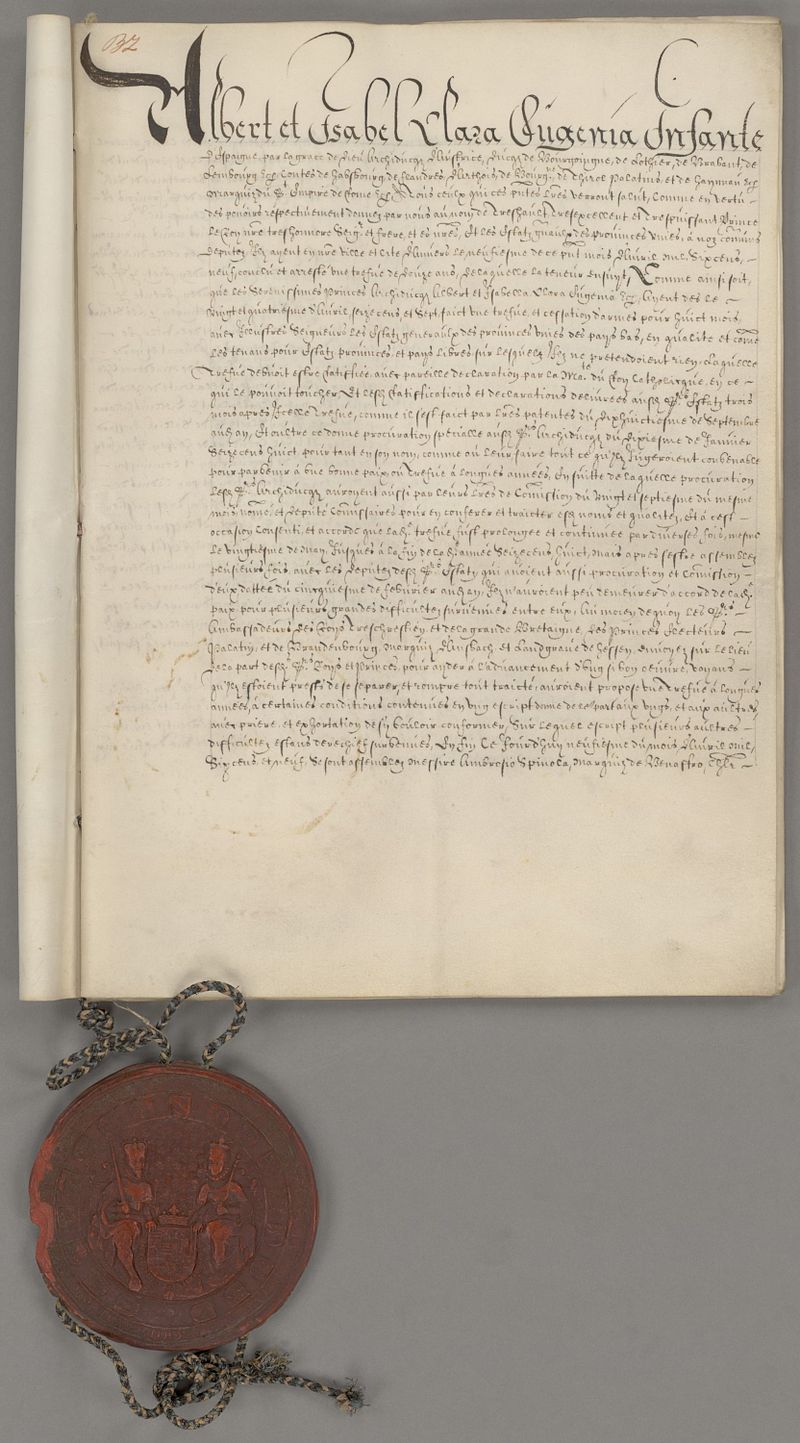 132
Albert et Isabel Clara Eugenia Infante
d'Espaigne, par la grace de Dieu Archiducqz d'Austrice, Ducqz de Bourgoingne, de Lothier, de Brabant, de
Lembourg Contes de Habsbourg de Flandres, d'Arthois, de Bourgne, de Thirol Palatins, et de Haynnau
Marquiz du St Empire de Rome A Tous ceulx qui ces pntes lres verront salut, Comme en vertu
des pouvoirs respectivement donnez par nous au nom de Treshault, Tresexcellent et Trespuissant Prince
le Roy nre treshonnoré Seigr et frere, et es nres, Et les Estatz gnaulx des Provinces Unies, à noz commis
deputez Ilz ayent en nre Ville et Cité d'Anvers le neufiesme de ce pnt mois d'Avril Mil, Six cens,
neuf, conclu et arresté une trefue de douze ans, de laquelle la teneur ensuyt, Comme ainsi soit,
que les Serenissimes Princes Archiducqz Albert et Isabella Clara Eugenia Ayent des le
vingt et quatriesme d'Avril, seize cens et sept, faict une trefue, et cessation d'armes pour huict mois,
avecq Illustres Seigneurs les Estatz generaulx des provinces unies des pays bas, en qualité et come
les tenans pour Estatz provinces, et pays libres, sur lesquelz Ilz ne pretendoient rien, Laquelle
Trefue debvoit estre Ratifiée, avecq pareille declaration par la Mate du Roy Catholicque, en ce
qui le pouvoit toucher, Et lesd ratiffications et declarations delivrées ausd Srs Estatz trois
mois apres Icelle Trefue, comme il s'est faict par lres patentes du dixhuictiesme de Septembre
aud an, Et oultre ce donné procuration specialle ausd Srs Archiducqz du dixiesme de Janvier
Seize cens huict, pour tant en son nom, comme au leur, faire tout ce qu'ilz Jugeroient convenable
pour parvenir à une bonne paix, ou trefue à longues années, En suitte de laquelle procuration
lesd Srs Archiducqz auroyent aussi par leurs lres de Commission du vingt et septiesme du mesme
mois, nommé, et deputé Commissaires pour en conferer et traicter esd noms et qualitez, Et à cest
occasion consenti, et accordé que lad trefue fust prolongée et continuée par diverses fois, mesme
le vingtiesme de May, Jusques à la fin de lad année Seize cens huict, mais apres s'estre assemblez
plusieurs fois, avecq les Deputez desd Srs Estatz, qui avoient aussi procuration et Commission
d'eux dattée du cincquiesme de febvrier aud an, Ilz n'auroient peu demeurer d'accord de lad
paix pour plusieurs grandes difficultez survenues entre eux, Au moien dequoy les Srs
Ambassadeurs des Roys Treschrestien, et de la grande Bretaigne, des Princes Electeurs
Palatin, et de Brandenbourg, Marquiz d'Ansbach, et Landgrave de Hessen, envoyez sur le lieu
de la part desd Srs Roys et Princes, pour ayder à l'advancement d'ung si bon oeuvre, voyans
qu'ilz estoient prestz de se separer, et rompre tout traicté, auroient proposé une trefue à longues
années, à certaines conditions contenues en ung escript donné de leur part aux ungs, et aux aultres,
avecq priere, et exhortation de s'y vouloir conformer, Sur lequel escript plusieurs aultres
difficultez estans derechief survenues, En fin Ce Jourd'huy neufiesme du mois d'Avril Mil,
Six cens, et neuf, Se sont assemblez Messire Ambrosio Spinola, Marquiz de Benaffro,